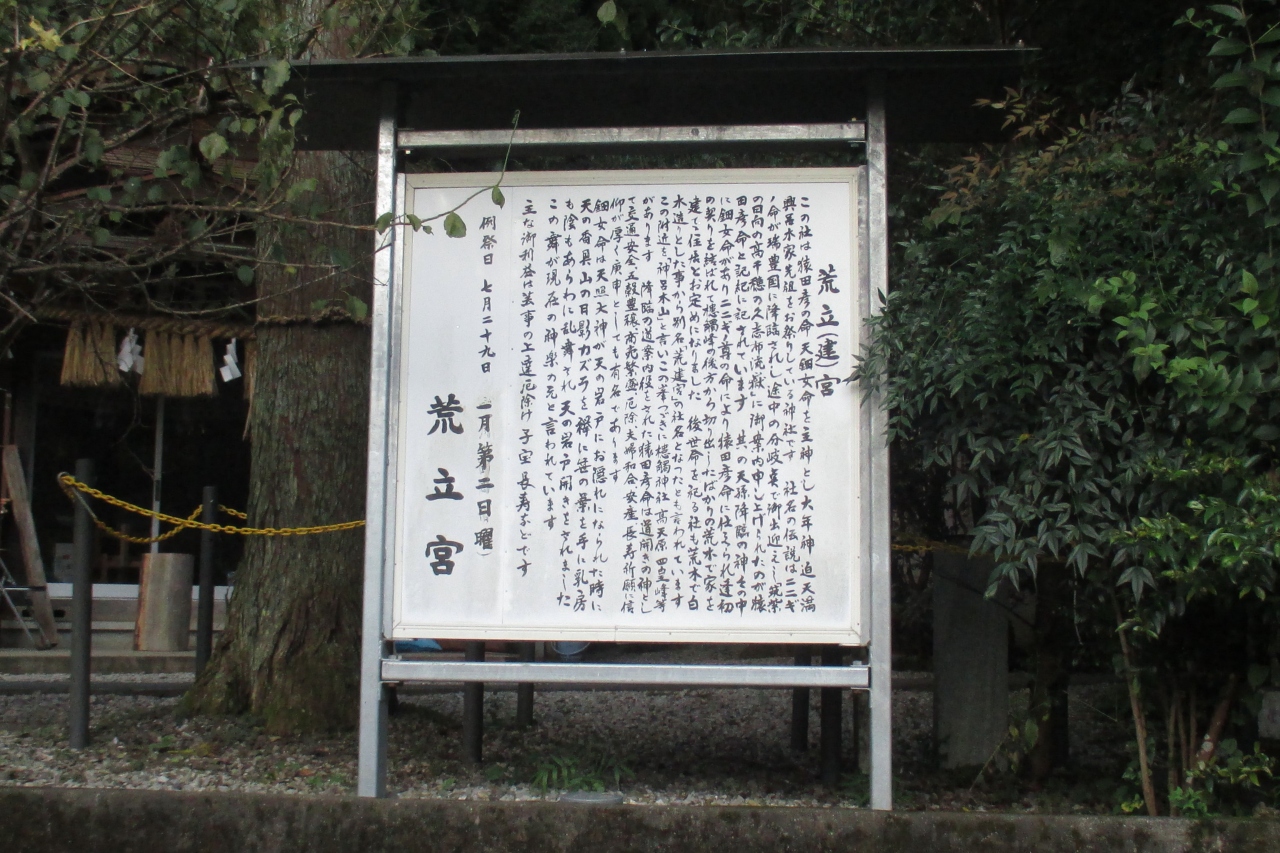 荒立(建)宮
この社は猿田彦の命天鈿女命を主神とし大年神迫天潟
興呂木家先祖をお祭りしている神社です 社名の伝説は二ニギ
ノ命が瑞豊国に降臨されし途中の分岐点で御出迎えし筑紫
の日向の高千穂の久志布流嶽に御案内申し上げられたのが猿
田彦命と記紀に記されています 其の天孫降臨の神々の中
に鈿女命があり二二ギノ尊の命により猿田彦命に仕そられ達初
の契りを結ばれて槵触峰の後方から切り出したばかりの荒木で家を
建てゝ住居とお定めになりました 後世命を祀る社も荒木で白
木造りとした事から別名荒建宮の社名となったとも言われています
この附近を神呂木山と言いこの峯つづきに槵觸神社高天原四皇峰等
があります 降臨の道案内役をされた猿田彦命は道開きの神とし
て交通安全五穀豊穣商売繁盛厄除夫婦和合安産長寿祈願に信
仰が厚く庚申としても有名であります
鈿女命は天照大神が天の岩戸にお隠れになられた時に
天の香具山の日影カズラを襷に笹の葉を手に乳房
も陰もあらわに乱舞され天の岩戸開きをされました
この舞が現在の神楽の元と言われています
主な御利益は芸事の上達厄除け子宝長寿などです
例祭日 七月二十九日 二月第二日曜)
荒立宮